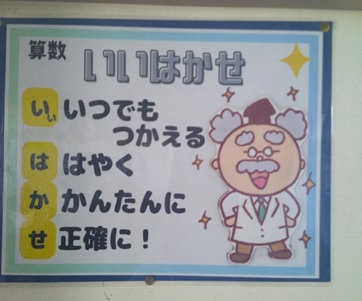 算数
いいはかせ
いぃ いつでも
つかえる
は はやく
か かんたんに
せ 正確に！